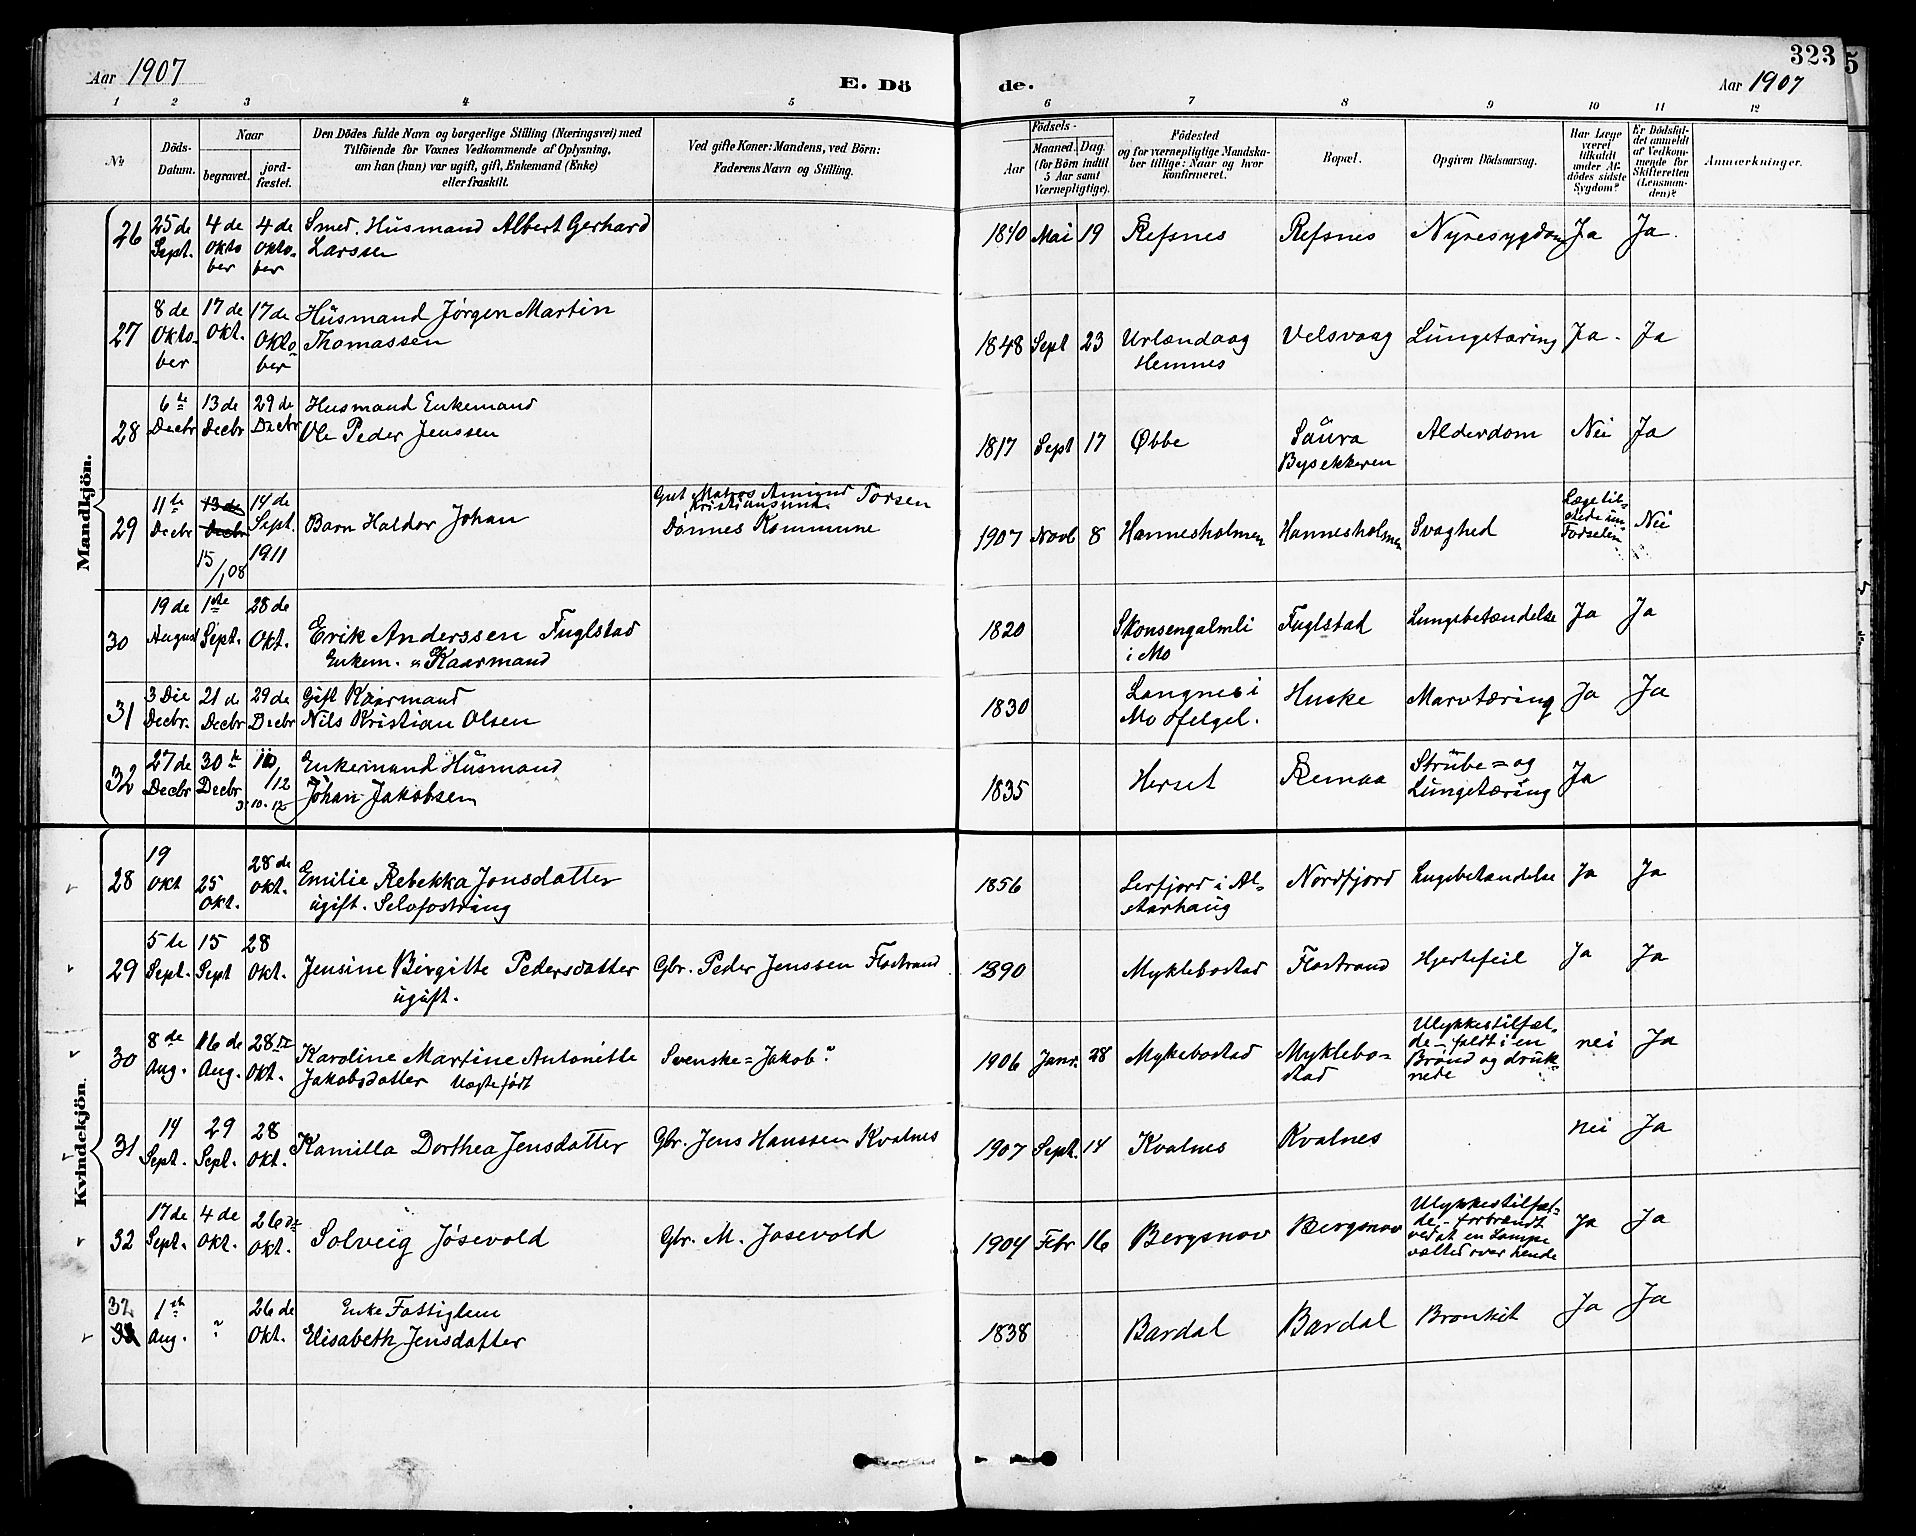 Aar 1907
E. Dö
de.
323
5
Aar 1907
1 2 3 4 5 6 7 8 9 10 11 12
No
Döds-
Datum.
Naar
begravet.
jord-
fæstet.
Den Dödes fulde Navn og borgerlige Stilling (Næringsvei) med
Tilföiende for Voxnes Vedkommende af Oplysning,
om han (hun) var ugift, gift, Enkemand (Enke)
eller fraskilt.
Ved gifte Koner: Mandens, ved Börn:
Faderens Navn og Stilling.
Födsels-
Aar
Maaned. Dag
(for Börn indtil
5 Aar samt
Værnepligtige).
Födested
og for værnepligtige Mandska-
ber tillige: Naar og hvor
konfirmeret.
Bopæl.
Opgiven Dödsaarsag.
Har Læge
været
tilkaldt
under Af-
dödes sidste
Sygdom?
Er Dödsfal-
det anmeldt
af Vedkom-
mende for
Skifteretten
(Lensman-
den)?
Anmærkninger.
Mandkjön.
26 25 de Sept. 4 de Oktober 4 de Oktober Smed. Husmand Albert Gerhard
Larssen
1840 Mai 19 Refsnes Refsnes Nyresygdom Ja Ja.
27 8 de Oktober 17 de Okt. 17 de Oktober Husmand Jørgen Martin
Thomassen
1848 Sept 23 Urlandaag
Hemnes
Velsvaag Lungetæring Ja. Ja
28 6te Decbr 13 de Decbr 29 de Decbr Husmand Enkemand
Ole Peder Jenssen
1817 Sept 17 Øbbe Saura
Alderdom Nei Ja
29 11te Decbr 13 de Decbr 15/1 08 14 de Sept. 1911 Barn Haldor Johan
Gut Matros Amund Torsen
Kristiansund
Dønnes Kommune
1907 Novb 8 Hannesholmen Hannesholmen Svaghed Nei
30 19 de August 1ste Sept. 28 de Okt. Erik Anderssen Fuglstad
Enkem. Kaarmand
1820 Skonsengalmli
i Mo
Fuglstad Lungebetændelse Ja Ja
31 3 Die Decbr. 21 d Decbr 29 de Decbr Gift Kaarmand
Nils Kristian Olsen
1830 Langnes i
Mo
Huske Marvtæring Ja Ja
32 27 de Decbr 30te Decbr 10/12 Enkemand Husmand
Johan Jakobsen
1835 Herset Remaa Strube= og
Lungetæring Ja
Kvindekjön.
28 19 Okt 25 Okt. 28 de Okt. Emilie Rebekka Jonsdatter
ugift. Selvfostring
1856 Lerfjord i Al-
starhaug
Nordfjord Lugebetandelse Ja Ja
29 5te Sept. 15 Sept 28 Okt. Jensine Birgitte Pedersdatter
ugift.
Gbr. Peder Jenssen Flostrand
1890 Myklebostad Flostrand Hjertefeil Ja Ja
30 8de Aug. 16 de Aug. 28de Okt. Karoline Martine Antonette
Jakobsdatter Uægtefødt
Svenske = Jakob"
1906 Janr. 28 Mykebostad Myklebo-
stad
Ulykkestilfæl-
de - faldt i en
Brønd og druk-
nede
nei Ja
31 14 Sept. 29 Sept. 28 Okt. Kamilla Dorthea Jensdatter
Gbr. Jens Hanssen Kvalnes
1907 Sept. 14 Kvalnes Kvalnes nei Ja
32 17 de Sept. 4 de Okt. 26de Okt. Solveig Jøsevold
Gbr. M. Jøsevold
1904 Febr 16 Bergsnov Bergsnov Ulykkestilfæl-
de - forbrændt
ved at en Lampe
vælted over hende
Ja Ja
32 33 1ste Aug. " 26 de Okt. Enke Fattiglem
Elisabeth Jensdatter
1838 Bardal Bardal Bronkit Ja Ja